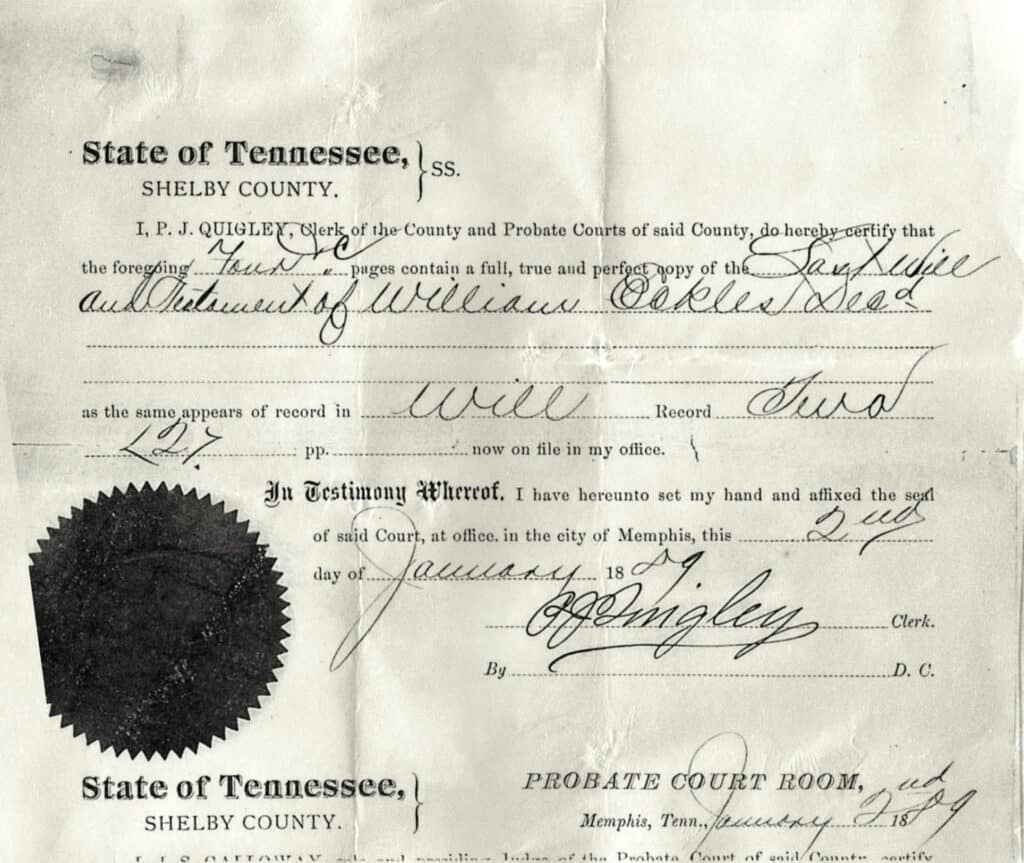 State of Tennessee, } SS.
SHELBY COUNTY.
I, P. J. QUIGLEY, Clerk of the County and Probate Courts of said County, do hereby certify that
the foregoing Four pages contain a full, true and perfect copy of the Last Will
and Testament of William Eckles Decd
as the same appears of record in Will Record Two
127 pp. now on file in my office.
In Testimony Whereof, I have hereunto set my hand and affixed the seal
of said Court, at office in the city of Memphis, this 2nd
day of January 1889
P J Quigley Clerk.
By D. C.
State of Tennessee, }
SHELBY COUNTY.
PROBATE COURT ROOM,
Memphis, Tenn., January 2nd 1889
I, J. S. GALLOWAY, sole and presiding Judge of the Probate Court of said County, certify